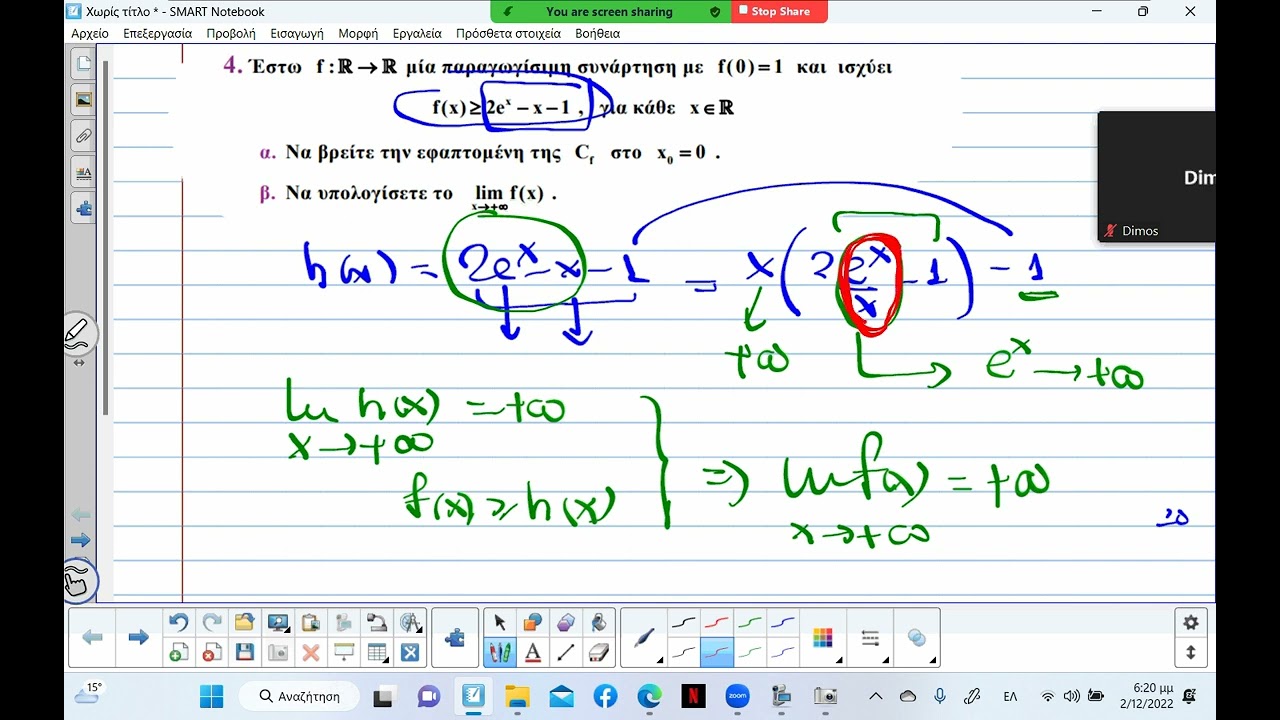 Χωρίς τίτλο * - SMART Notebook
You are screen sharing
Stop Share
Αρχείο Επεξεργασία Προβολή Εισαγωγή Μορφή Εργαλεία Πρόσθετα στοιχεία Βοήθεια
4. Έστω f : ℝ → ℝ μία παραγωγίσιμη συνάρτηση με f(0) = 1 και ισχύει
f(x) ≥ 2eˣ − x − 1 , για κάθε x ∈ ℝ
α. Να βρείτε την εφαπτομένη της C_f στο x₀ = 0 .
β. Να υπολογίσετε το lim f(x) .
x→+∞
Dim
Dimos
h(x) = 2eˣ − x − 1 = x(2 eˣ/x − 1) − 1
+∞
eˣ → +∞
lim h(x) = +∞
x → +∞
f(x) ≥ h(x)
⇒ lim f(x) = +∞
x → +∞
15°
Αναζήτηση
zoom
ΕΛ
6:20 μμ
2/12/2022